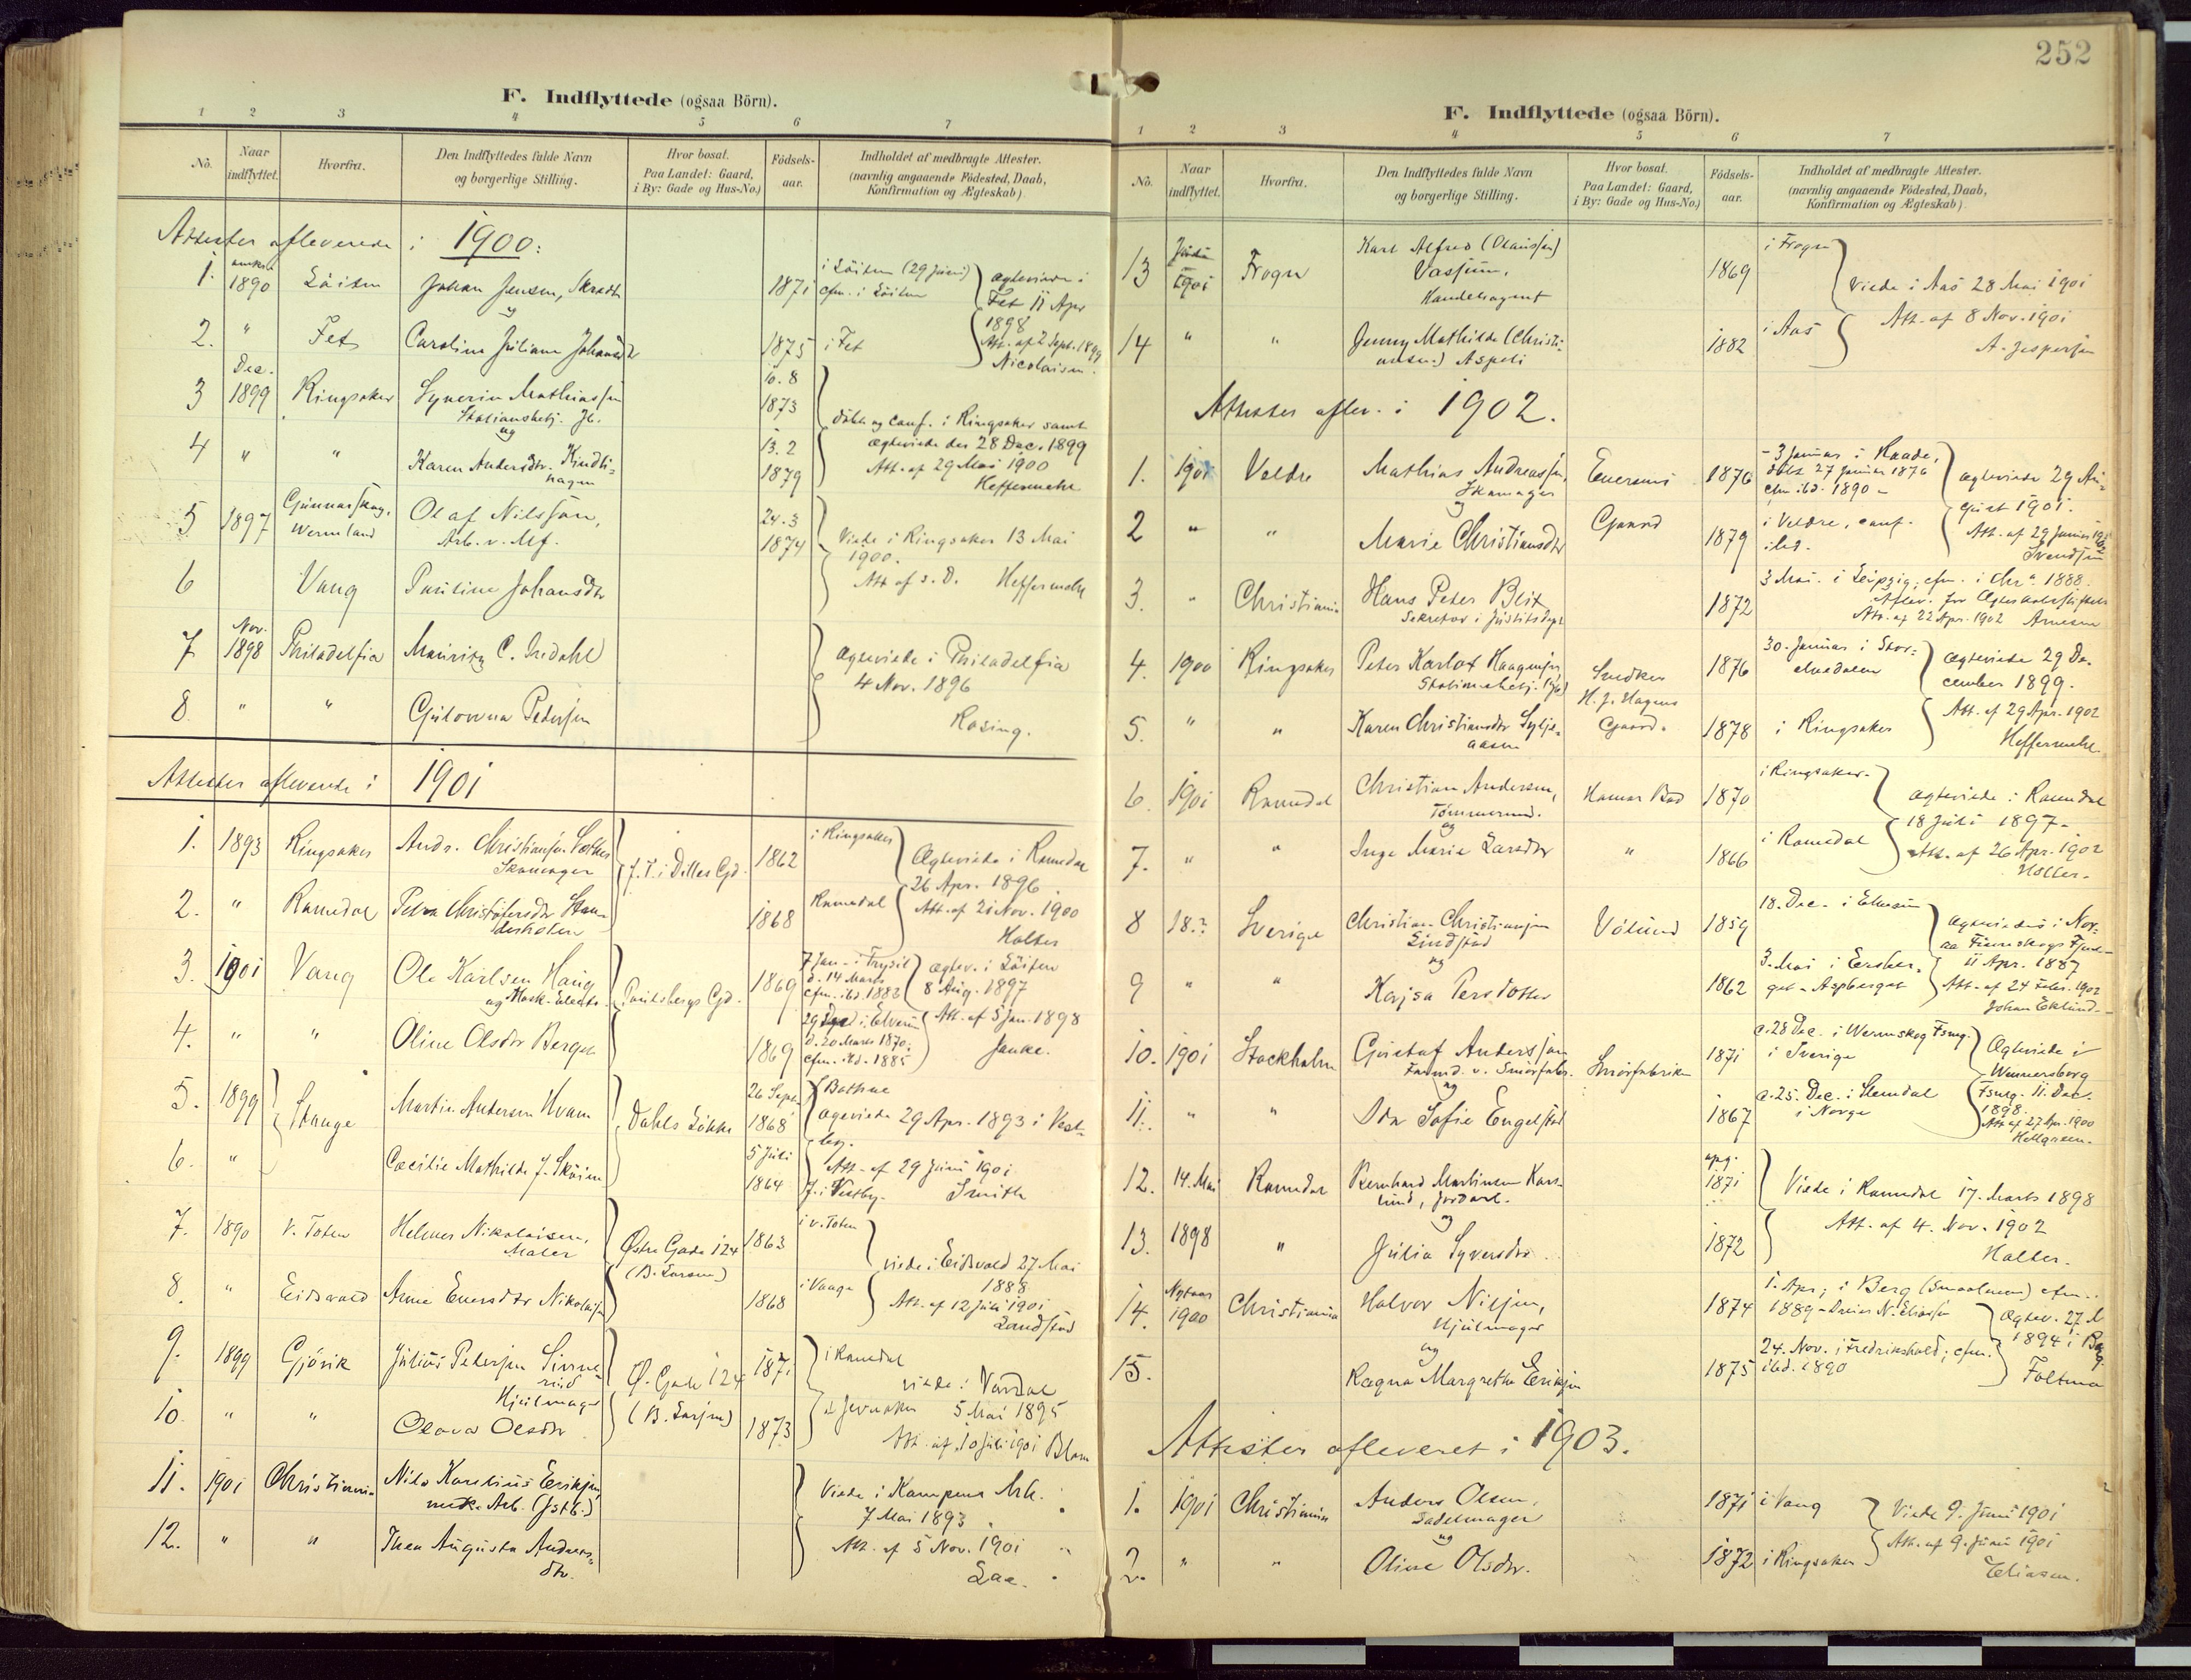 F. Indflyttede (ogsaa Börn).
1 2 3 4 5 6 7
No. Naar indflyttet. Hvorfra. Den Indflyttedes fulde Navn og borgerlige Stilling. Hvor bosat. Paa Landet: Gaard, i By: Gade og Hus-No.) Födsels-aar. Indholdet af medbragte Attester. (navnlig angaaende Födested, Daab, Konfirmation og Ægteskab)
Attester afleverede i 1900:
1. 1890 Löiten Johan Jensen, 1871 i Löiten (29 Juni) cfm. i Löiten
og
2. " Fet Caroline Juliane Johansd 1875 i Fet
ægteviede i Fet 11 Apr 1898
Att. af 2 Sept. 1899
Nicolaisen.
3 Dec. 1899 Ringsaker Syverin Mathiassen 10.8 1873
og
4 " " Karen Andersdtr. Kindli-hagen 13.2 1879
döbt og conf. i Ringsaker samt
ægteviede der 28 Dec. 1899
Att. af 29 Mai 1900
Heffermehl
5 1897 Gunnarskog, Wermland Olaf Nilssön, Arb. v. Mf. 24.3 1874
6 Vang Pauline Johansdtr
Viede i Ringsaker 13 Mai
1900.
Att af s. D. Heffermehl
7 Nov. 1898 Philadelfia Mauritz C.
8 " " Pedersen
ægteviede i Philadelfia
4 Nov. 1896
Rosing.
Attester afleverede i 1901
1. 1893 Ringsaker Andr. Christiansen Skomager J. T. i Dilles Gd. 1862 i Ringsaker
2. " Romedal Petra Christofersdtr 1868 Romedal
Ægteviede i Romedal
26 Apr. 1896.
Att. af 21 Nov. 1900
Halter
3. 1901 Vang Ole Karlsen Haug Paulsbergs Gd. 1869 7 Jan. i Trysil d. 14 Marts cfm. ibd. 1883
4. " " Oline Olsdtr Berget 1869 i Elverum d. 20 Marts 1870, cfm. ibd. 1885
ægtev. i Löiten
8 Aug. 1897
Att. af 5 Jan. 1898
Janke.
5. 1899 Stange Martin Andersen Hvam Dahls Lökke 26 Sept. 1868
6. " Cæcilie Mathilde J. Sköien 5 Juli 1864
ægteviede 29 Apr. 1893 i Vest-
by.
Att. af 29 Juni 1901
J. i Vestby. Smith
7. 1890 V. Toten Helmer Nikolaisen, Maler Østre Gade 124 1863 i v. Toten
8. " Eidsvold Anne Enersdtr Nikolaisen (B. Larsen) 1868 i Vaage
viede i Eidsvold 27 Mai
1888
Att. af 12 Juli 1901
Sandstad
9. 1899 Gjövik Julius Petersen Hjulmager Ø. Gade 124 1871 i Romedal
10. " " Olava Olsdtr (B. Larsen) 1873 i Jevnaker
viede i Vardal
5 Mai 1895
Att. af 10 Juli 1901 Blom
11. 1901 Christiania Nils Karelius Eriksen
12. " " Thea Augusta Andreas-dtr.
Viede i Kampens Krk.
7 Mai 1893
Att. af 5 Nov. 1901
Laa.
252
F. Indflyttede (ogsaa Börn).
1 2 3 4 5 6 7
No. Naar indflyttet. Hvorfra. Den Indflyttedes fulde Navn og borgerlige Stilling. Hvor bosat. Paa Landet: Gaard, i By: Gade og Hus-No.) Födsels-aar. Indholdet af medbragte Attester. (navnlig angaaende Födested, Daab, Konfirmation og Ægteskab)
13 1901 Frogn Karl Alfred (Olaussen) Vassum, Handelsagent 1869 i Frogn
14 " " Jenny Mathilde (Christi-ansen) Aspeli 1882 i Aas
Viede i Aas 28 Mai 1901
Att. af 8 Nov. 1901
A. Jespersen
Attester aflev. i 1902.
1. 1901 Veldre Mathias Andreassen, Skomager Enersens 1876 3 Januar i Raade, döbt 27 Januar 1876 cfm ibd. 1890
og
2 " " Marie Christiansdtr Gaard 1879 i Veldre, conf. ibd.
ægteviede 29 Au-
gust 1901.
Att. af 29 Januar 1902
Svendsen
3. " Christiania Hans Peter Blix Sekretær i Justitsdept 1872 3 Mai i Leipzig, cfm. i Chra 1888.
Aflev. for Ægteskabsstiftelse
Att. af 22 Apr. 1902 Arnesen
4. 1900 Ringsaker Peter Karlot Haagensen Snedker 1876 30. Januar i Stor-elvedalen
H. J. Hagens
5. " " Karen Christiansdtr Sylje-aasen Gaard. 1878 i Ringsaker
ægteviede 29 De-
cember 1899.
Att. af 29 Apr. 1902
Heffermehl
6. 1901 Romedal Christian Andersen, Tömmermd. Hamar Bad 1870 i Ringsaker
og
7. " " Inga Marie Larsdtr " 1866 i Romedal
ægteviede i Romedal
18 Juli 1897
Att. af 26 Apr. 1902
Halter.
8 18.? Sverige Christian Christiansen Lindstad Völund 1859 18. Dec. i Elverum
og
9 " " Kajsa Persdotter 1862 3. Mai i Eersker-get - Aspberget
ægteviedes i Nor-
ra Finnskogs Fsml
11 Apr. 1887
Att. af 24 Febr. 1902
Johan Eklund
10. 1901 Stockholm Gustaf Andersson Formd. v. Smörfabr. Smörfabriken 1871 c. 28 Dec. i Wermskog Fsmg. i Sverige
og
11. " " Ida Sofie Engelstad 1867 c. 25. Dec. i Stemdal i Norge
Ægteviede i
Wennersborg
Fsmg. 11. Dec.
1898.
Att af 27 Apr. 1900
Hellgreen.
12. 14. Mai Romedal Bernhard Martinsen Kors-lund, Jordarb. opg. 1871
og
13. 1898 " Julia Syversdtr 1872
Viede i Romedal 17. Marts 1898
Att. af 4. Nov. 1902
Halter.
14. Nytaar 1900 Christiania Halvor Nilsen, Hjulmager 1874 1. Apr. i Berg (Smaalenene) cfm. 1889
og
15. Ragna Margrethe Eriksen 1875 24. Nov. i Fredrikshald; cfm. ibd. 1890
Ægtev. 27
1894 i Berg
Attester afleveret i 1903.
1. 1901 Christiania Anders Olsen, Sadelmager 1871 i Vang
og
2. " " Oline Olsdtr. 1872 i Ringsaker
Viede 9. Juni 1901
Att. af 9. Juni 1901
Eliassen.